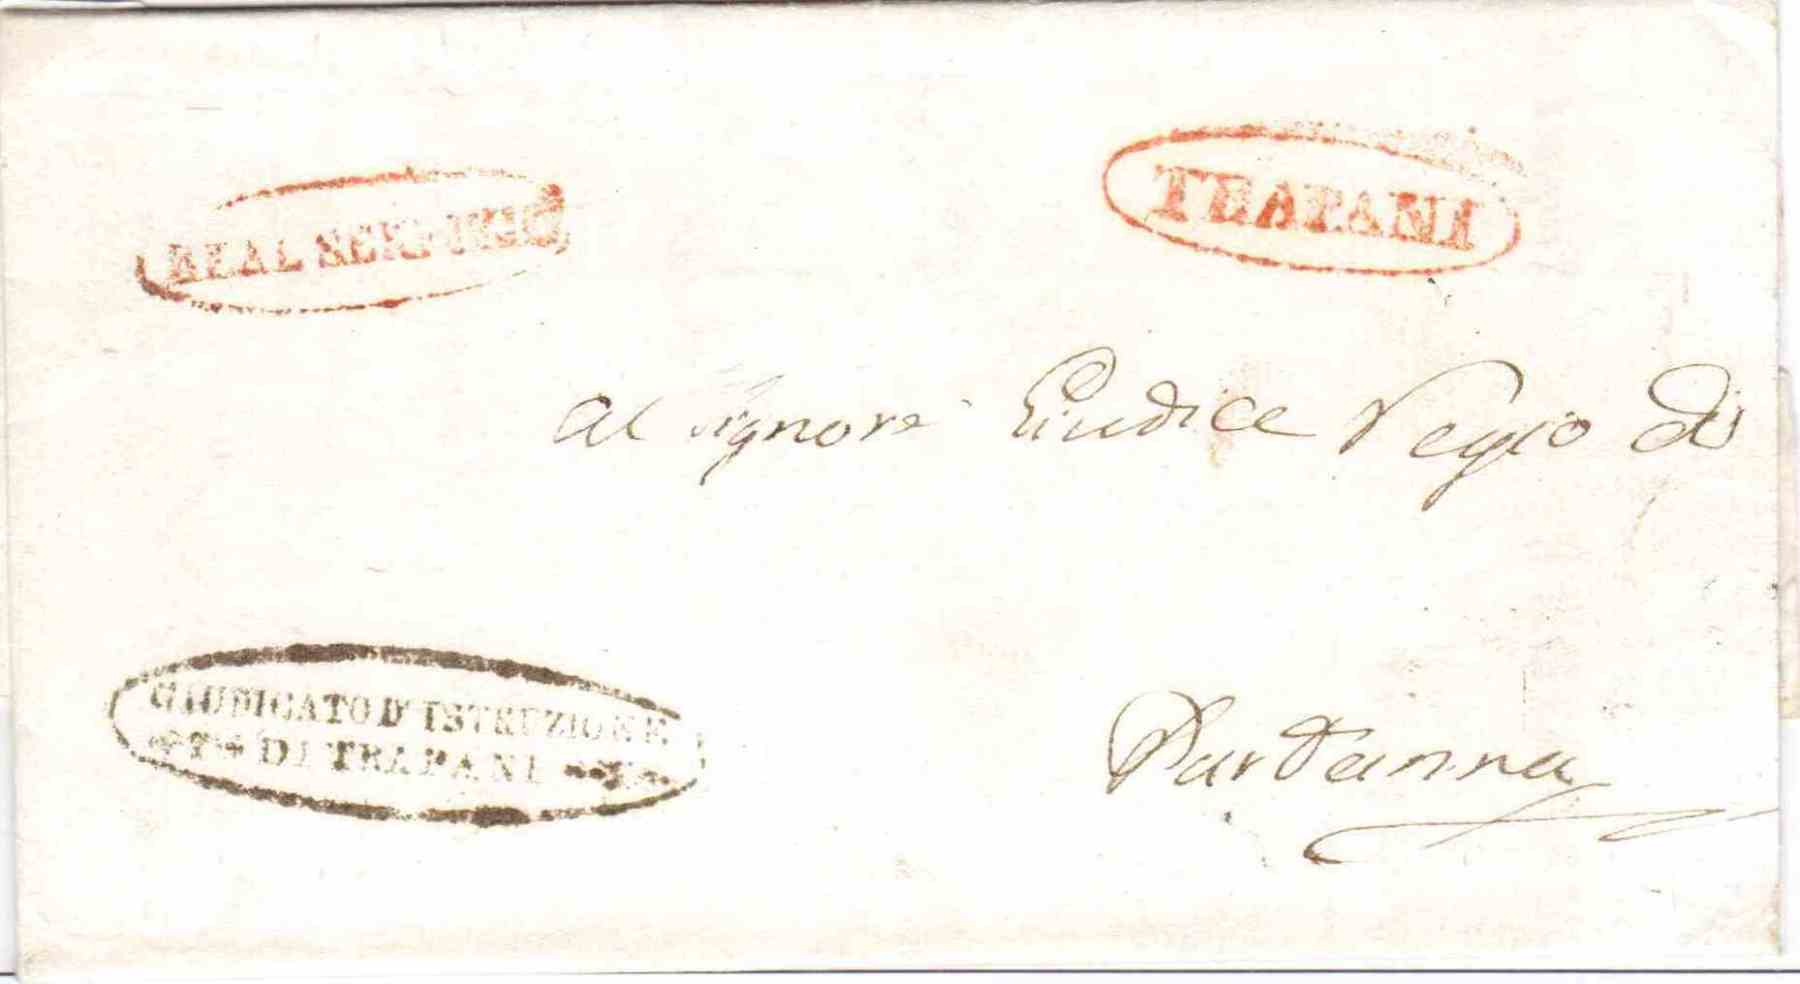 REAL SERVIZIO
TRAPANI
Al Signore Giudice Regio di
GIUDICATO D' ISTRUZIONE
DI TRAPANI
Partanna